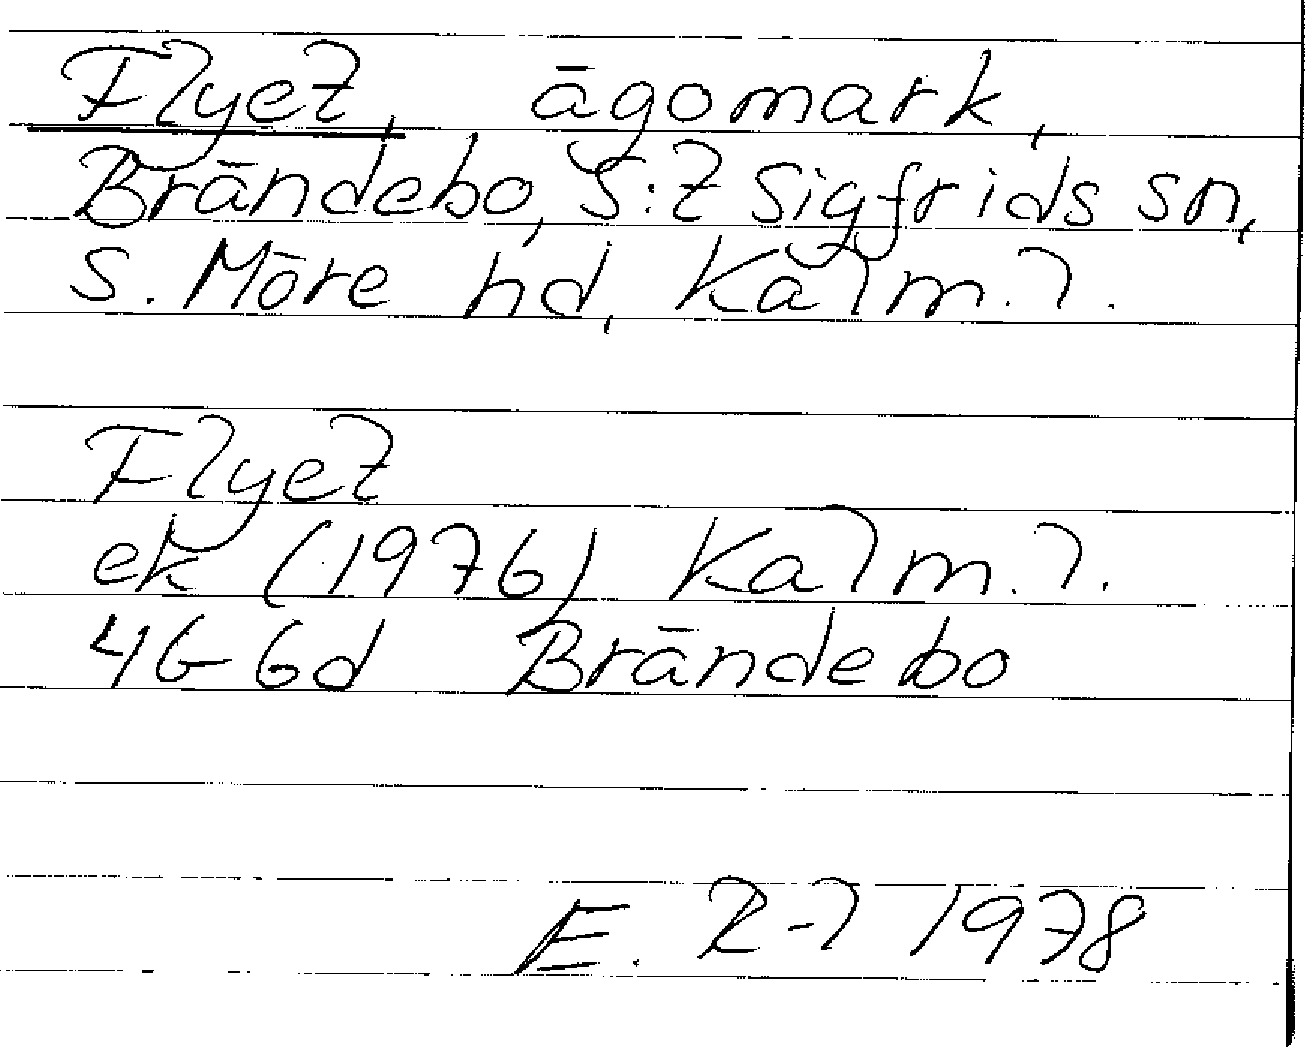 Flyet, ägomark,
Brändebo, S:t Sigfrids sn,
S. Möre hd, Kalm. l.
Flyet
ek (1976) Kalm. l.
4G 6d Brändebo
E. R-l 1978